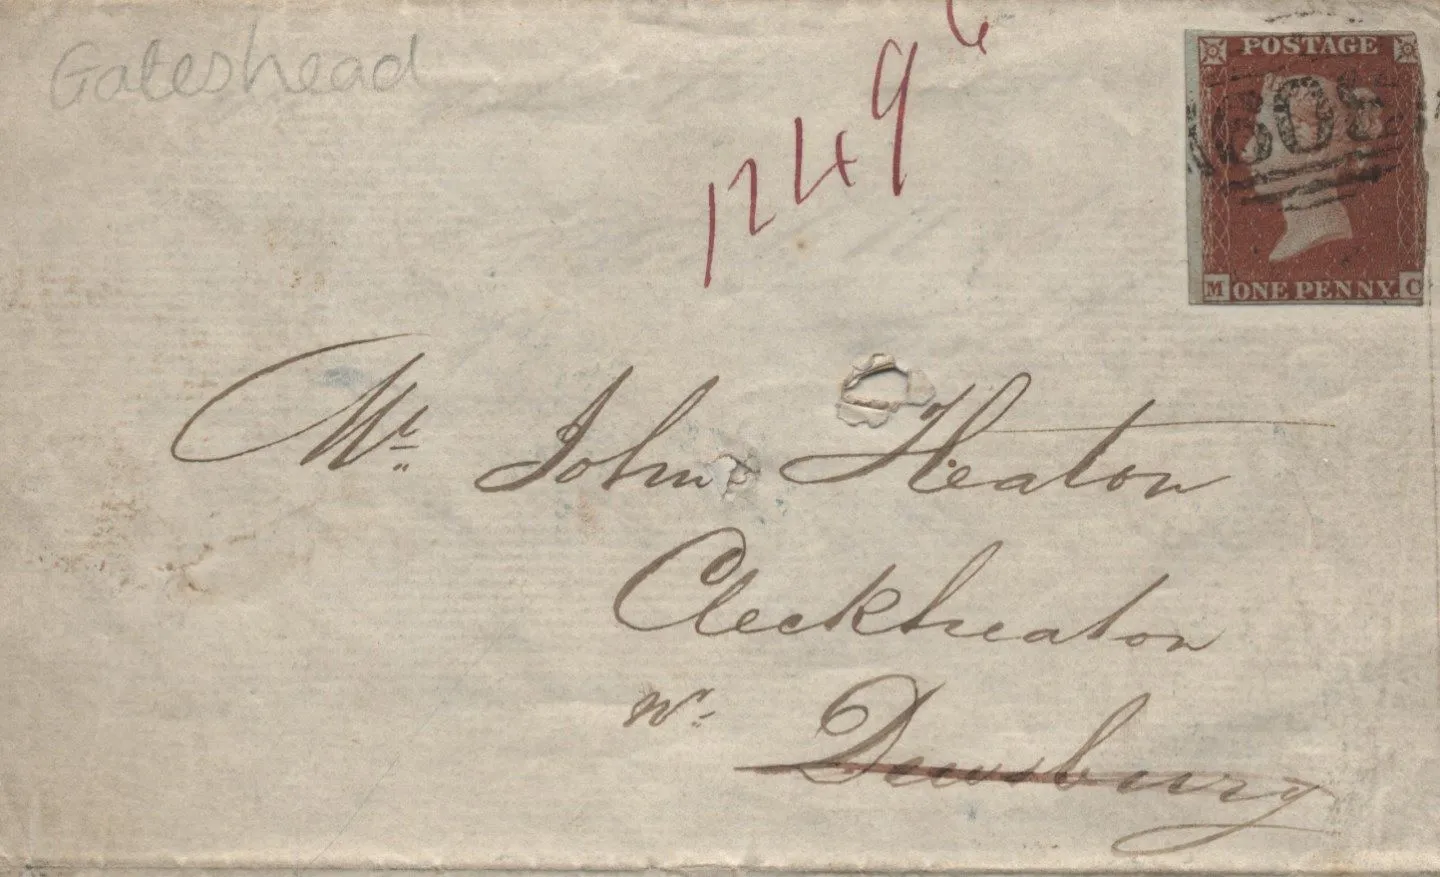 Gateshead
1249
POSTAGE
M ONE PENNY. C
Mr. John Heaton
Cleckheaton
Nr. Dewsbury